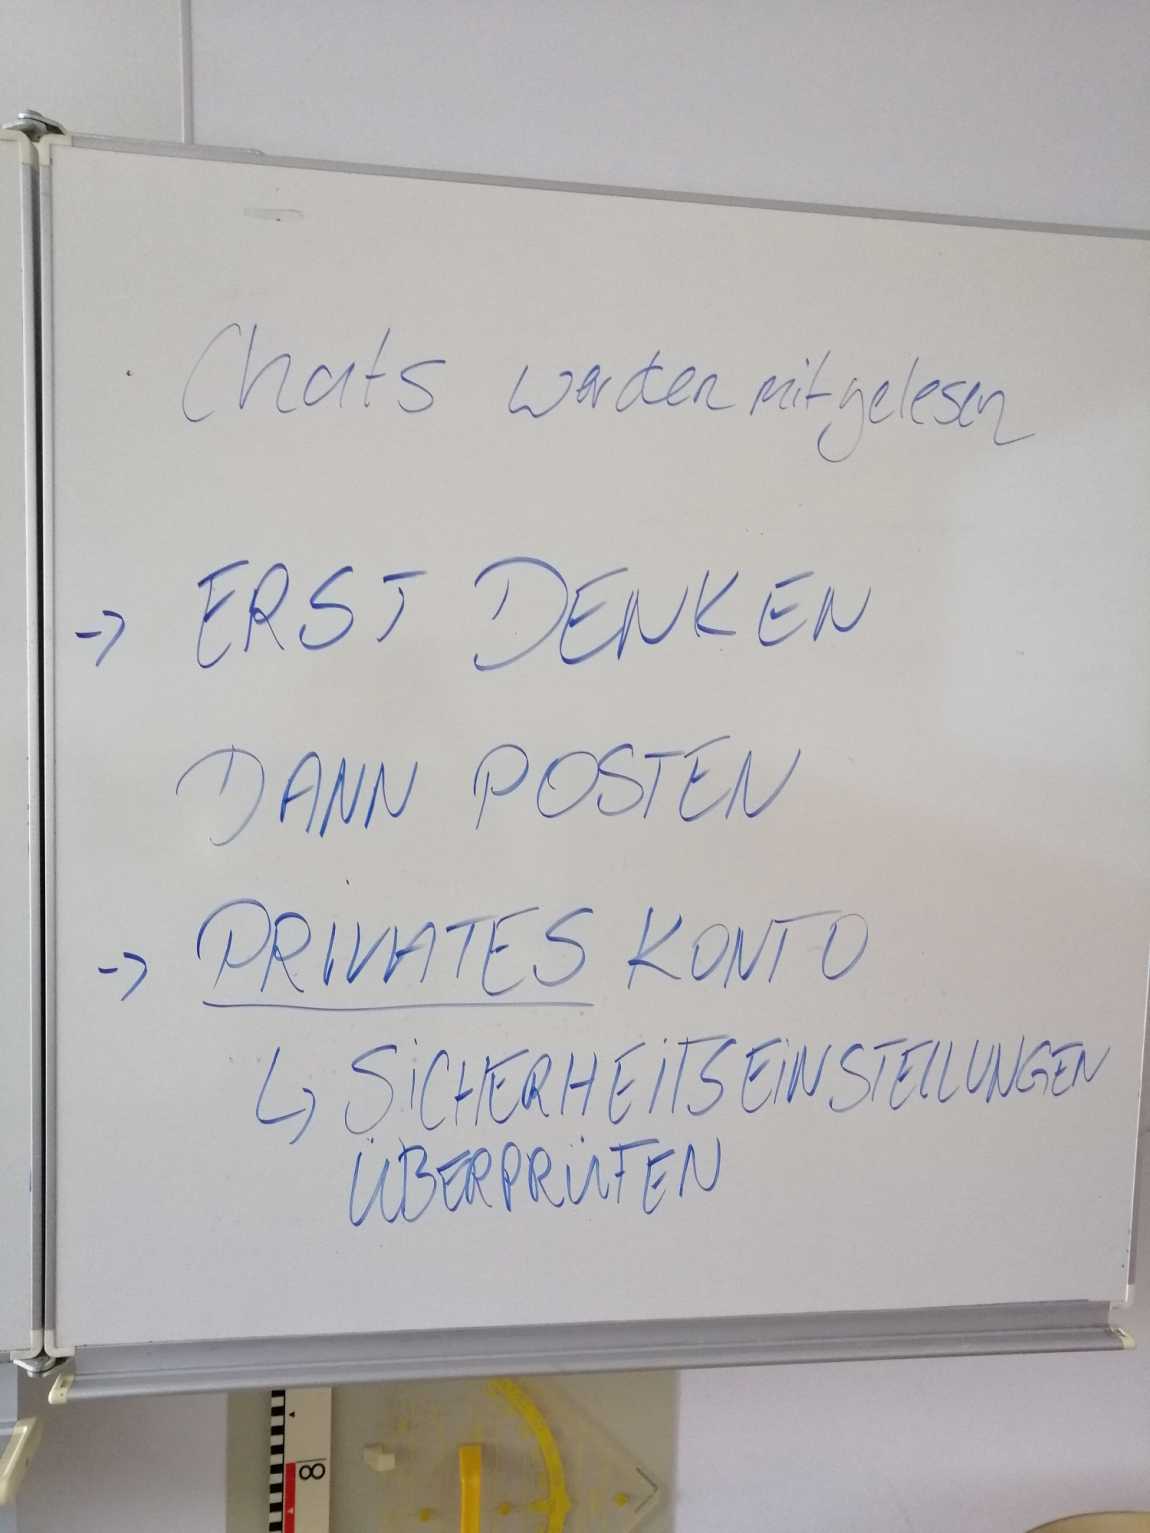 Chats werden mitgelesen
-> ERST DENKEN
DANN POSTEN
-> PRIVATES KONTO
↳ SICHERHEITSEINSTELLUNGEN
ÜBERPRÜFEN
8